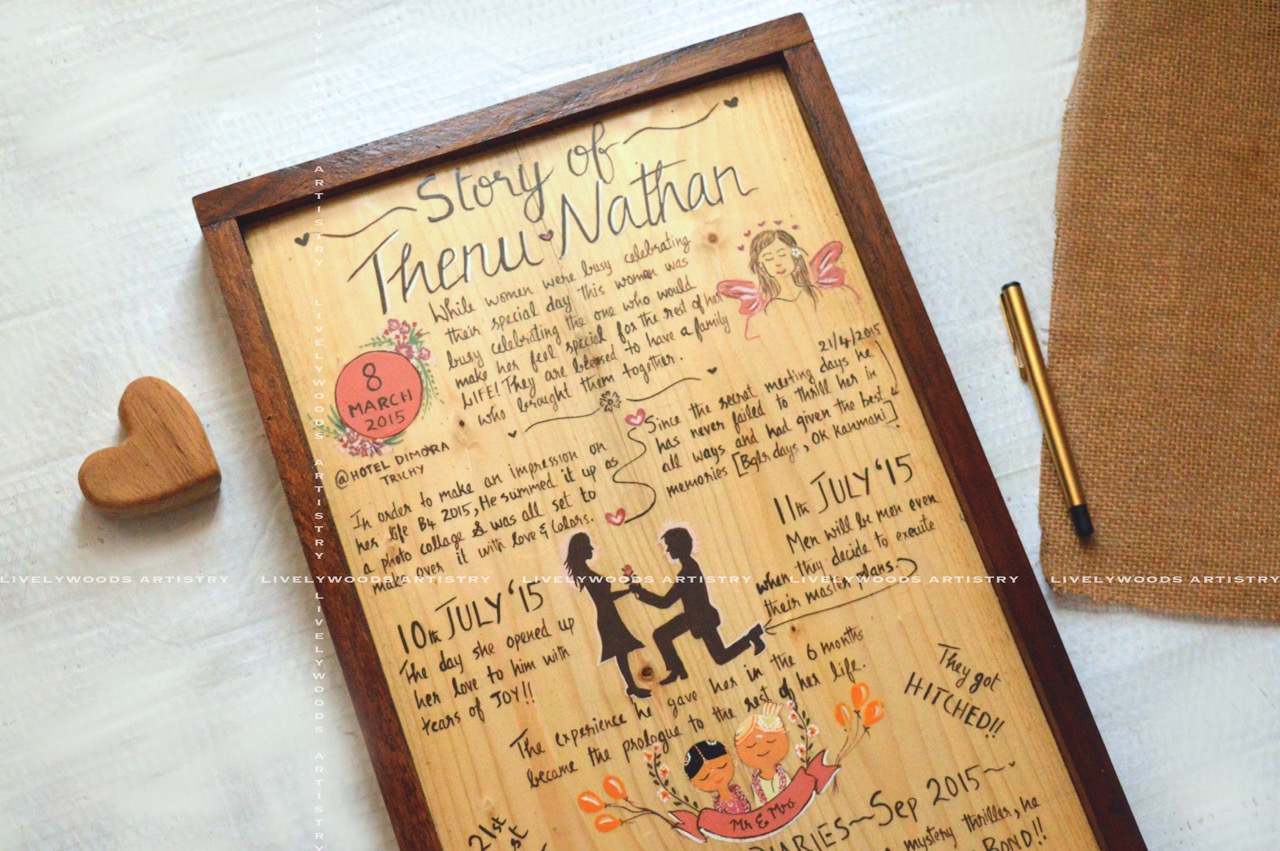 Story of
Thenu Nathan
While women were busy celebrating
their special day this woman was
busy celebrating the one who would
make her feel special for the rest of her
LIFE! They are blessed to have a family
who brought them together.
8
MARCH
2015
@HOTEL DIMORA
TRICHY
21/4/2015
Since the secret meeting days he
has never failed to thrill her in
all ways and had given the best
memories [Bglr days, OK Kanmani]
In order to make an impression on
her life B4 2015, He summed it up as
a photo collage & was all set to
make over it with love & Colors.
10th JULY '15
The day she opened up
her love to him with
tears of JOY!!
11th JULY '15
Men will be men even
when they decide to execute
their master plans.
The experience he gave her in the 6 months
became the prologue to the rest of her life.
They got
HITCHED!!
Mr & Mrs.
21st
DIARIES~Sep 2015~
mystery thriller, he
BOND!!
LIVELYWOODS ARTISTRY LIVELYWOODS ARTISTRY LIVELYWOODS ARTISTRY LIVELYWOODS ARTISTRY LIVELYWOODS ARTISTRY
LIVELYWOODS ARTISTRY LIVELYWOODS ARTISTRY LIVELYWOODS ARTISTRY